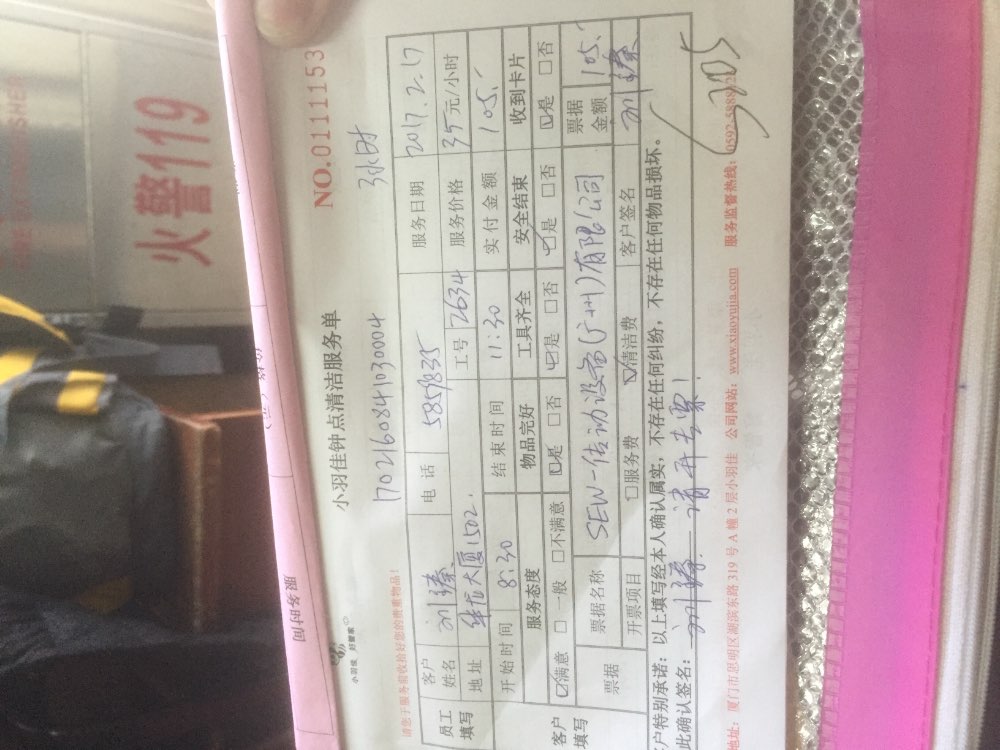 火警119
小羽佳钟点清洁服务单
NO.0111153
小羽佳 好管家
1702160841030004
3小时
请您于服务前收拾好您的贵重物品!
员工填写 客户姓名 刘臻 电话 5859835 服务日期 2017.2.17
地址 华龙大厦1502. 工号 2634 服务价格 35元/小时
开始时间 8:30 结束时间 11:30 实付金额 105.
客户填写 服务态度 物品完好 工具齐全 安全结束 收到卡片
☑满意 □一般 □不满意 ☑是 □否 ☑是 □否 ☑是 □否 ☑是 □否
票据 票据名称 SEW-传动设备(广州)有限公司 票据金额 105.
开票项目 □服务费 ☑清洁费 客户签名 刘臻
客户特别承诺:以上填写经本人确认属实,不存在任何纠纷,不存在任何物品损坏。
此确认签名: 刘臻 请开专票!
地址:厦门市思明区湖滨东路319号A幢2层小羽佳 公司网站:www.xiaoyujia.com 服务监督热线:0592-5888
服务时间